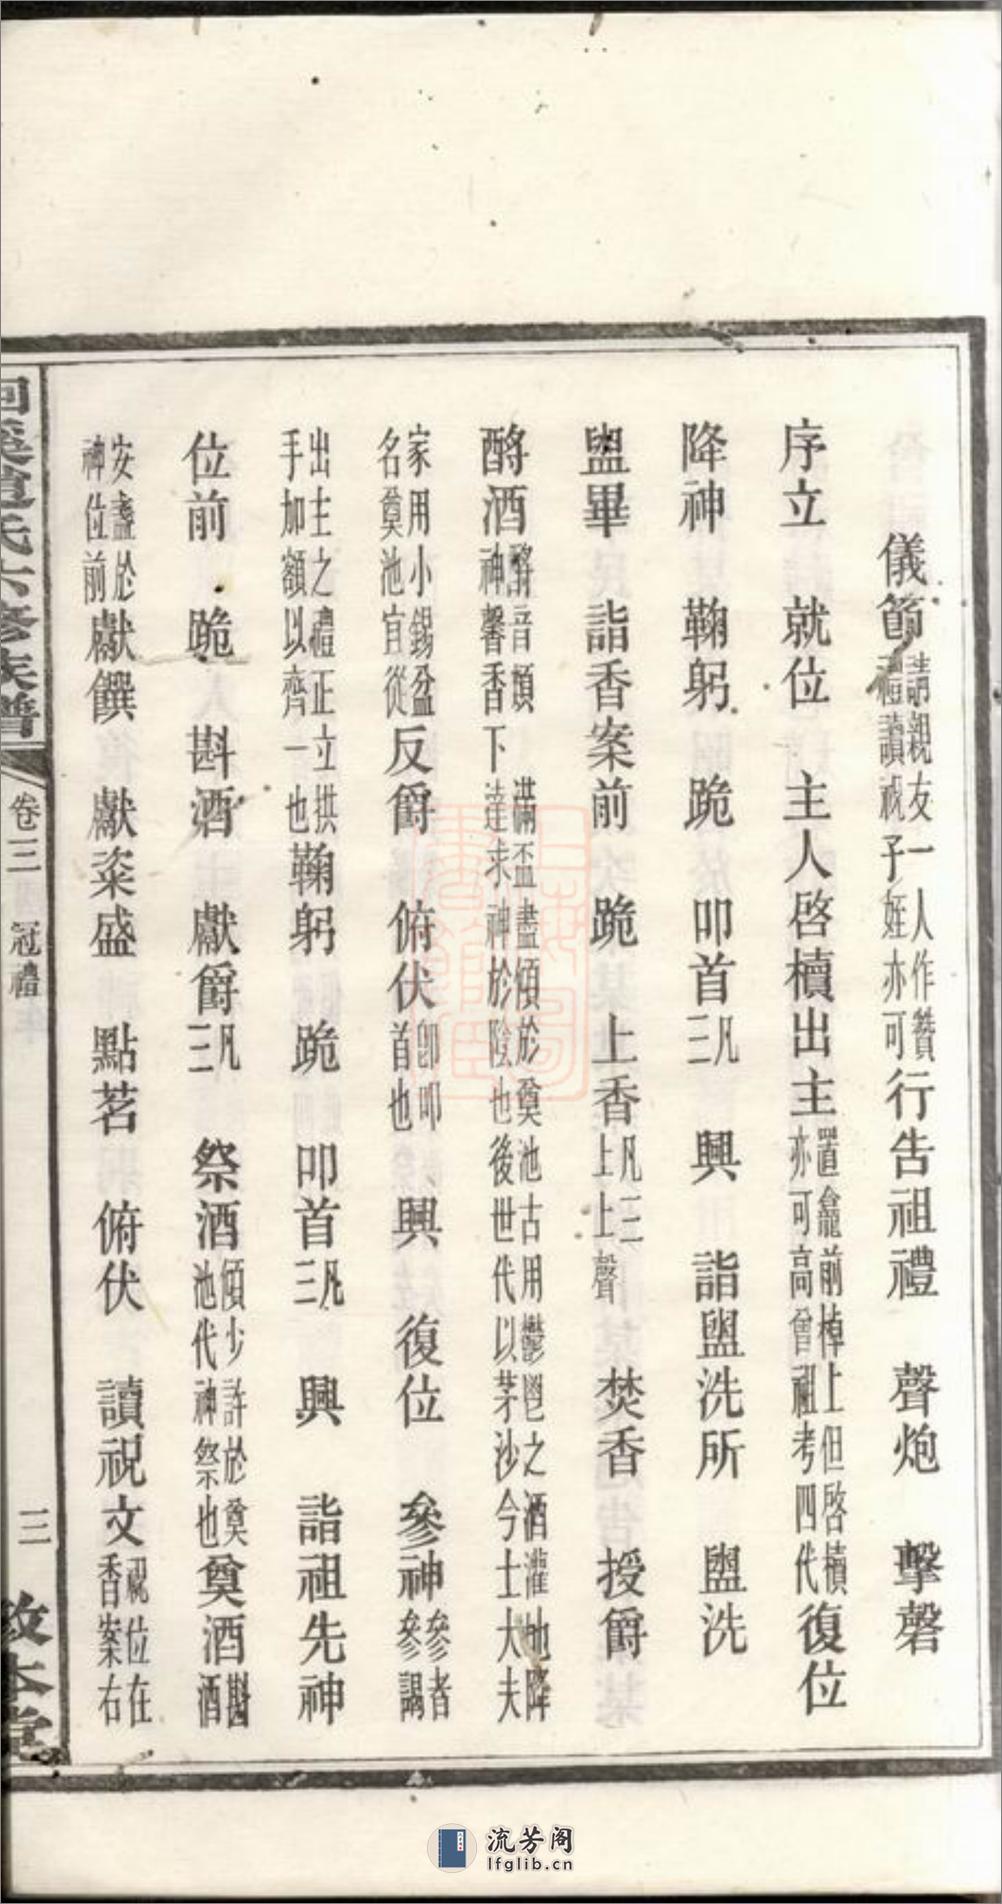 儀節請親友一人作贊禮讀祝子姪亦可行告祖禮　聲炮　擊磬
序立　就位　主人啓櫝出主置龕前棹上但啓櫝亦可高曾祖考四代復位
降神　鞠躬　跪　叩首凡三　興　詣盥洗所　盥洗
盥畢　詣香案前　跪　上香凡三上上聲　焚香　授爵
酹酒酹音類神馨香下滿盃盡傾於奠池古用鬱鬯之酒灌地降達求神於陰也後世代以茅沙今士大夫
家用小錫盆名奠池宜從反爵　俯伏卽叩首也　興　復位　參神參者參謁
出主之禮正立拱手加額以齊一也鞠躬　跪　叩首凡三　興　詣祖先神
位前　跪　斟酒　獻爵凡三　祭酒傾少許於奠池代神祭也奠酒斟酒
安盞於神位前獻饌　獻粢盛　點茗　俯伏　讀祝文祝位在香案右
氏六修族譜
卷三　冠禮
三
敦本堂
流芳阁
lfglib.cn